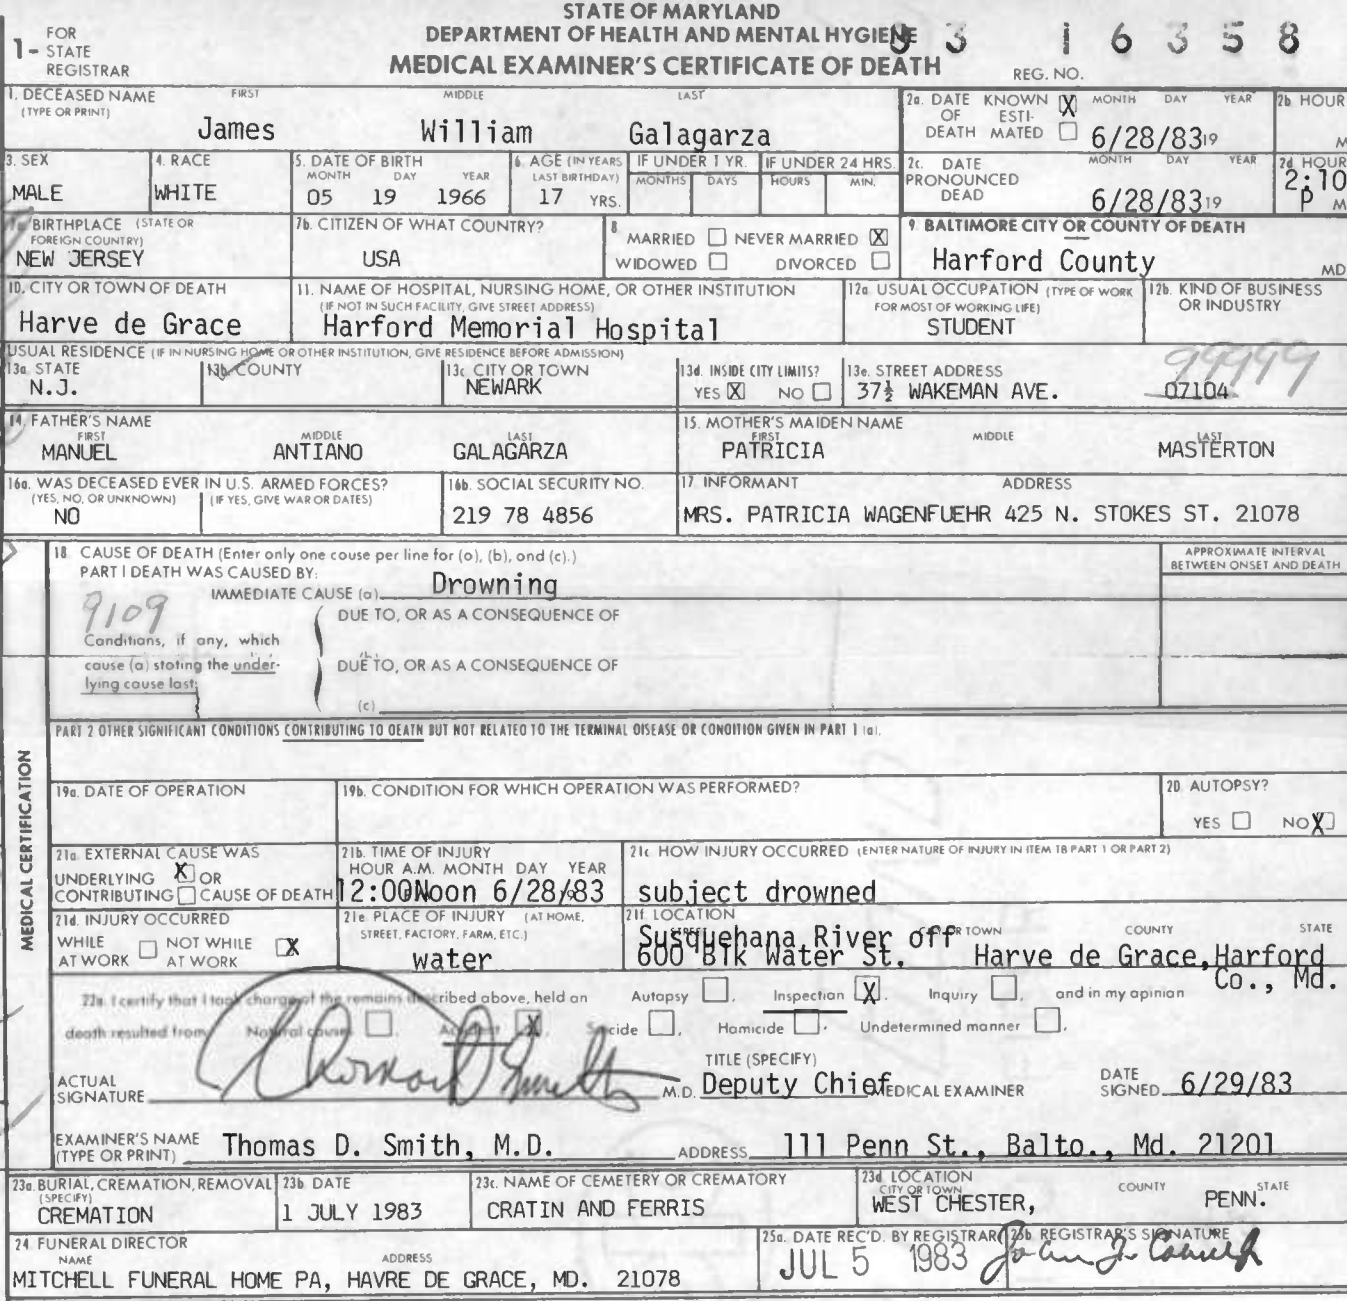 STATE OF MARYLAND
DEPARTMENT OF HEALTH AND MENTAL HYGIENE
MEDICAL EXAMINER'S CERTIFICATE OF DEATH
1- FOR STATE REGISTRAR
REG. NO. 83 16358
1. DECEASED NAME (TYPE OR PRINT) FIRST MIDDLE LAST
James William Galagarza
2a. DATE OF DEATH KNOWN X ESTIMATED MONTH DAY YEAR 2b HOUR
6/28/83 19 M
3. SEX 4. RACE 5. DATE OF BIRTH MONTH DAY YEAR 6. AGE (IN YEARS LAST BIRTHDAY) IF UNDER 1 YR. MONTHS DAYS IF UNDER 24 HRS. HOURS MIN.
MALE WHITE 05 19 1966 17 YRS.
2c. DATE PRONOUNCED DEAD MONTH DAY YEAR 2d. HOUR
6/28/83 19 2:10 P M
7a. BIRTHPLACE (STATE OR FOREIGN COUNTRY)
NEW JERSEY
7b. CITIZEN OF WHAT COUNTRY?
USA
8 MARRIED NEVER MARRIED X
WIDOWED DIVORCED
9. BALTIMORE CITY OR COUNTY OF DEATH
Harford County MD
10. CITY OR TOWN OF DEATH
Harve de Grace
11. NAME OF HOSPITAL, NURSING HOME, OR OTHER INSTITUTION
(IF NOT IN SUCH FACILITY, GIVE STREET ADDRESS)
Harford Memorial Hospital
12a. USUAL OCCUPATION (TYPE OF WORK FOR MOST OF WORKING LIFE)
STUDENT
12b. KIND OF BUSINESS OR INDUSTRY
USUAL RESIDENCE (IF IN NURSING HOME OR OTHER INSTITUTION, GIVE RESIDENCE BEFORE ADMISSION)
13a. STATE 13b. COUNTY 13c. CITY OR TOWN 13d. INSIDE CITY LIMITS? 13e. STREET ADDRESS 99999
N.J. NEWARK YES X NO 37½ WAKEMAN AVE. 07104
14. FATHER'S NAME FIRST MIDDLE LAST
MANUEL ANTIANO GALAGARZA
15. MOTHER'S MAIDEN NAME FIRST MIDDLE LAST
PATRICIA MASTERTON
16a. WAS DECEASED EVER IN U.S. ARMED FORCES?
(YES, NO, OR UNKNOWN) (IF YES, GIVE WAR OR DATES)
NO
16b. SOCIAL SECURITY NO.
219 78 4856
17. INFORMANT ADDRESS
MRS. PATRICIA WAGENFUEHR 425 N. STOKES ST. 21078
MEDICAL CERTIFICATION
18. CAUSE OF DEATH (Enter only one cause per line for (a), (b), and (c).)
APPROXIMATE INTERVAL BETWEEN ONSET AND DEATH
PART I DEATH WAS CAUSED BY:
IMMEDIATE CAUSE (a) Drowning
9109
DUE TO, OR AS A CONSEQUENCE OF
Conditions, if any, which
(b)
cause (a) stating the underlying cause last:
DUE TO, OR AS A CONSEQUENCE OF
(c)
PART 2 OTHER SIGNIFICANT CONDITIONS CONTRIBUTING TO DEATH BUT NOT RELATED TO THE TERMINAL DISEASE OR CONDITION GIVEN IN PART 1 (a).
19a. DATE OF OPERATION 19b. CONDITION FOR WHICH OPERATION WAS PERFORMED? 20. AUTOPSY?
YES NO X
21a. EXTERNAL CAUSE WAS
UNDERLYING X OR
CONTRIBUTING CAUSE OF DEATH
21b. TIME OF INJURY
HOUR A.M. MONTH DAY YEAR
12:00Noon 6/28/83
21c. HOW INJURY OCCURRED (ENTER NATURE OF INJURY IN ITEM 18 PART 1 OR PART 2)
subject drowned
21d. INJURY OCCURRED
WHILE AT WORK NOT WHILE AT WORK X
21e. PLACE OF INJURY (AT HOME, STREET, FACTORY, FARM, ETC.)
water
21f. LOCATION CITY OR TOWN COUNTY STATE
Susquehana River off
600 Blk Water St. Harve de Grace, Harford
Co., Md.
22a. I certify that I took charge of the remains described above, held an Autopsy , Inspection X , Inquiry , and in my opinion
death resulted from Natural cause , Accident X , Suicide , Homicide , Undetermined manner .
ACTUAL SIGNATURE Thomas D Smith M.D.
TITLE (SPECIFY)
Deputy Chief MEDICAL EXAMINER
DATE SIGNED 6/29/83
EXAMINER'S NAME (TYPE OR PRINT) Thomas D. Smith, M.D. ADDRESS 111 Penn St., Balto., Md. 21201
23a. BURIAL, CREMATION, REMOVAL (SPECIFY)
CREMATION
23b. DATE
1 JULY 1983
23c. NAME OF CEMETERY OR CREMATORY
CRATIN AND FERRIS
23d. LOCATION CITY OR TOWN COUNTY STATE
WEST CHESTER, PENN.
24. FUNERAL DIRECTOR
NAME ADDRESS
MITCHELL FUNERAL HOME PA, HAVRE DE GRACE, MD. 21078
25a. DATE REC'D. BY REGISTRAR
JUL 5 1983
25b. REGISTRAR'S SIGNATURE